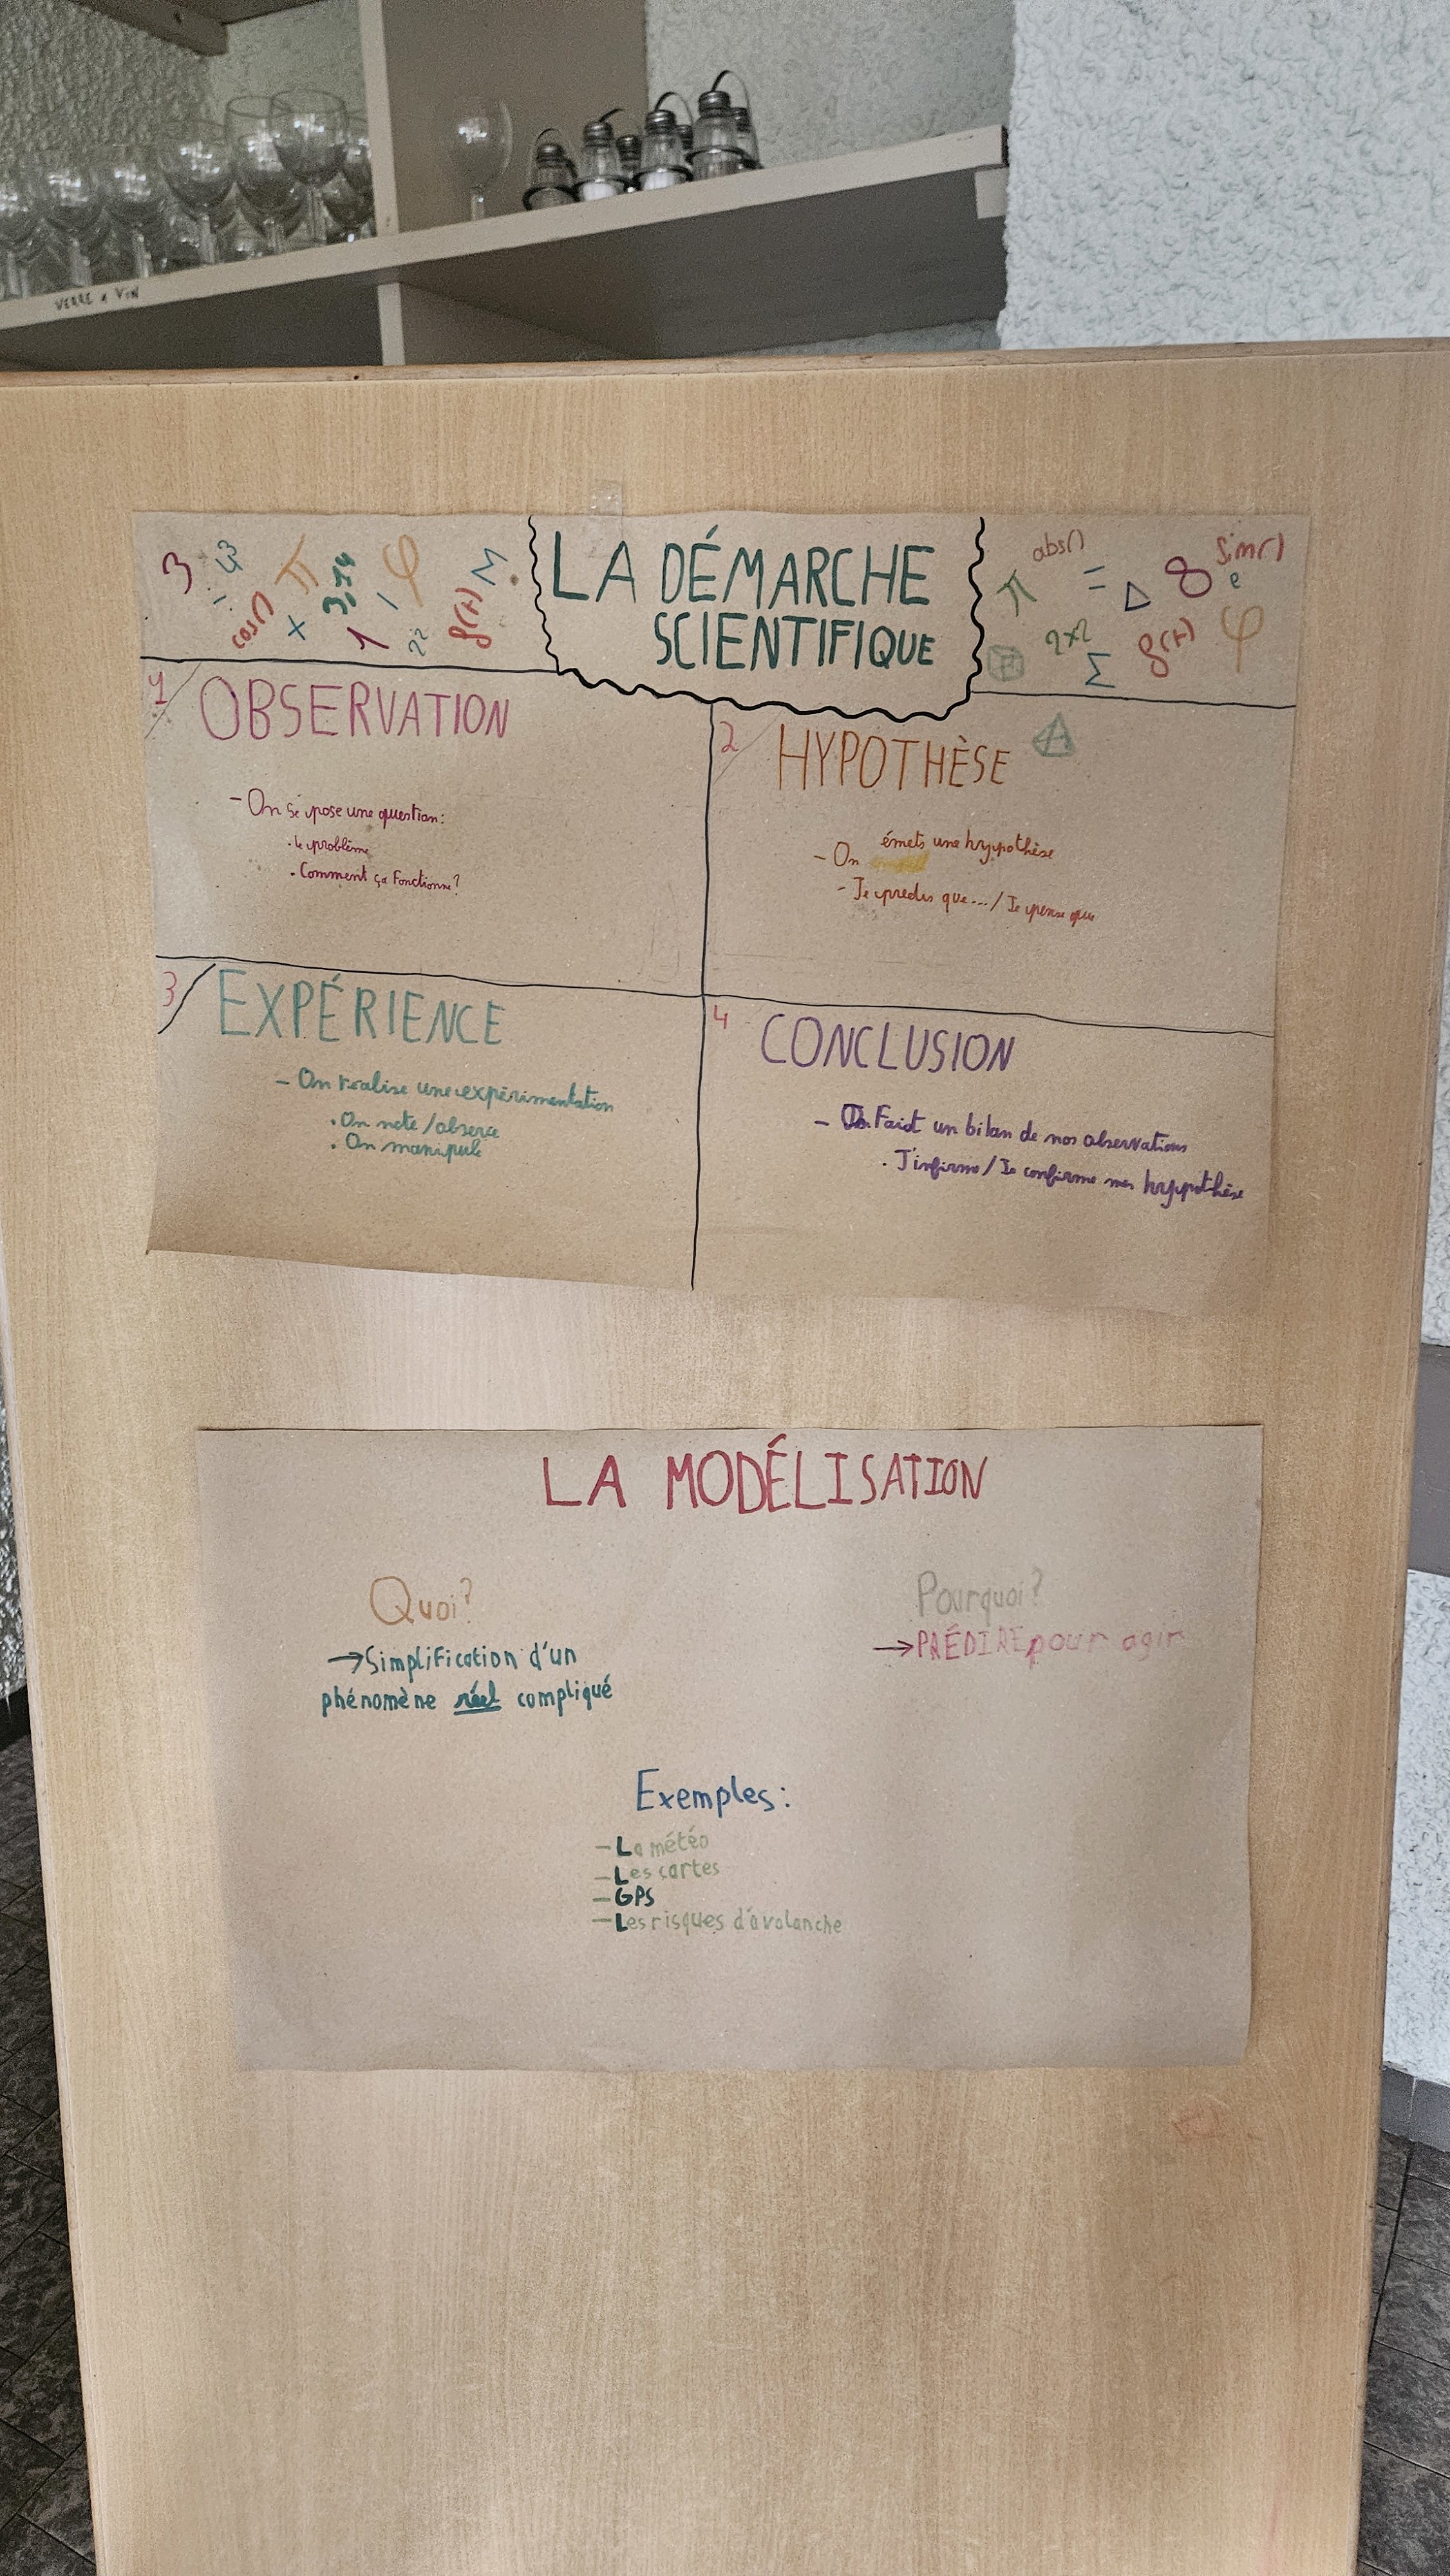 VERRE à VIN
LA DÉMARCHE
SCIENTIFIQUE
3 π 3,14 φ Σ
cos() + 1 2² f(x)
abs() = Δ 8 sin() e
π 2x2 Σ f(x) φ
1/ OBSERVATION
- On se pose une question:
. le problème
. Comment ça fonctionne?
2/ HYPOTHÈSE
- On émets une hypothèse
- Je predis que... / Je pense que
3/ EXPÉRIENCE
- On réalise une expérimentation
. On note / observe
. On manipule
4 CONCLUSION
- On Fait un bilan de nos observations
. J'infirme / Je confirme mes hypothèse
LA MODÉLISATION
Quoi?
→ Simplification d'un
phénomène réel compliqué
Pourquoi?
→ PRÉDIRE pour agir
Exemples:
- La météo
- Les cartes
- GPS
- Les risques d'avalanche